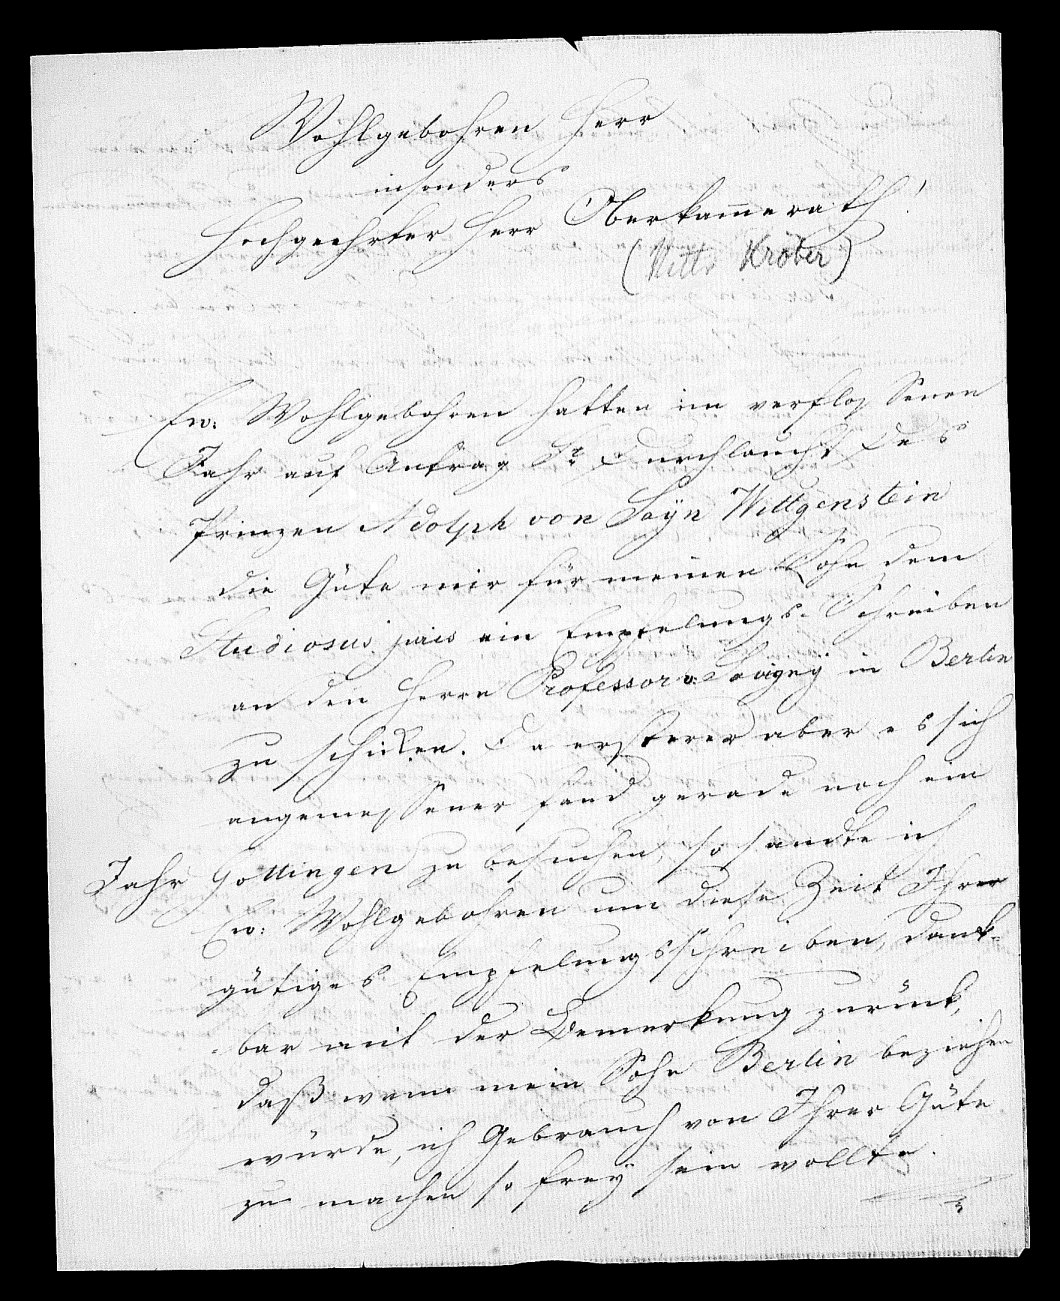 Wohlgebohren Herr
insonders
Hochgeehrter Herr Oberkam̅erath!
Kröber)
Ew: Wohlgebohren hatten im verfloßenen
Jahr auf Antrag Sr. Durchlaucht des
Prinzen Adolph von Sayn Wittgenstein
die Güte mir für meinen Sohn dem
Studiosus juris ein Empfelungs-Schreiben
an den Herrn Professor v. Savigny in Berlin
zu schicken. Da ersterer aber es sich
angemessener fand gerade noch ein
Jahr Göttingen zu besuchen, so sandte ich
Ew: Wohlgebohren um diese Zeit Ihrer
gütiges Empfelungsschreiben, dank-
bar mit der Bemerkung zurück,
daß wenn mein Sohn Berlin beziehen
würde, ich Gebrauch von Ihrer Güte
zu machen so frey sein wollte.